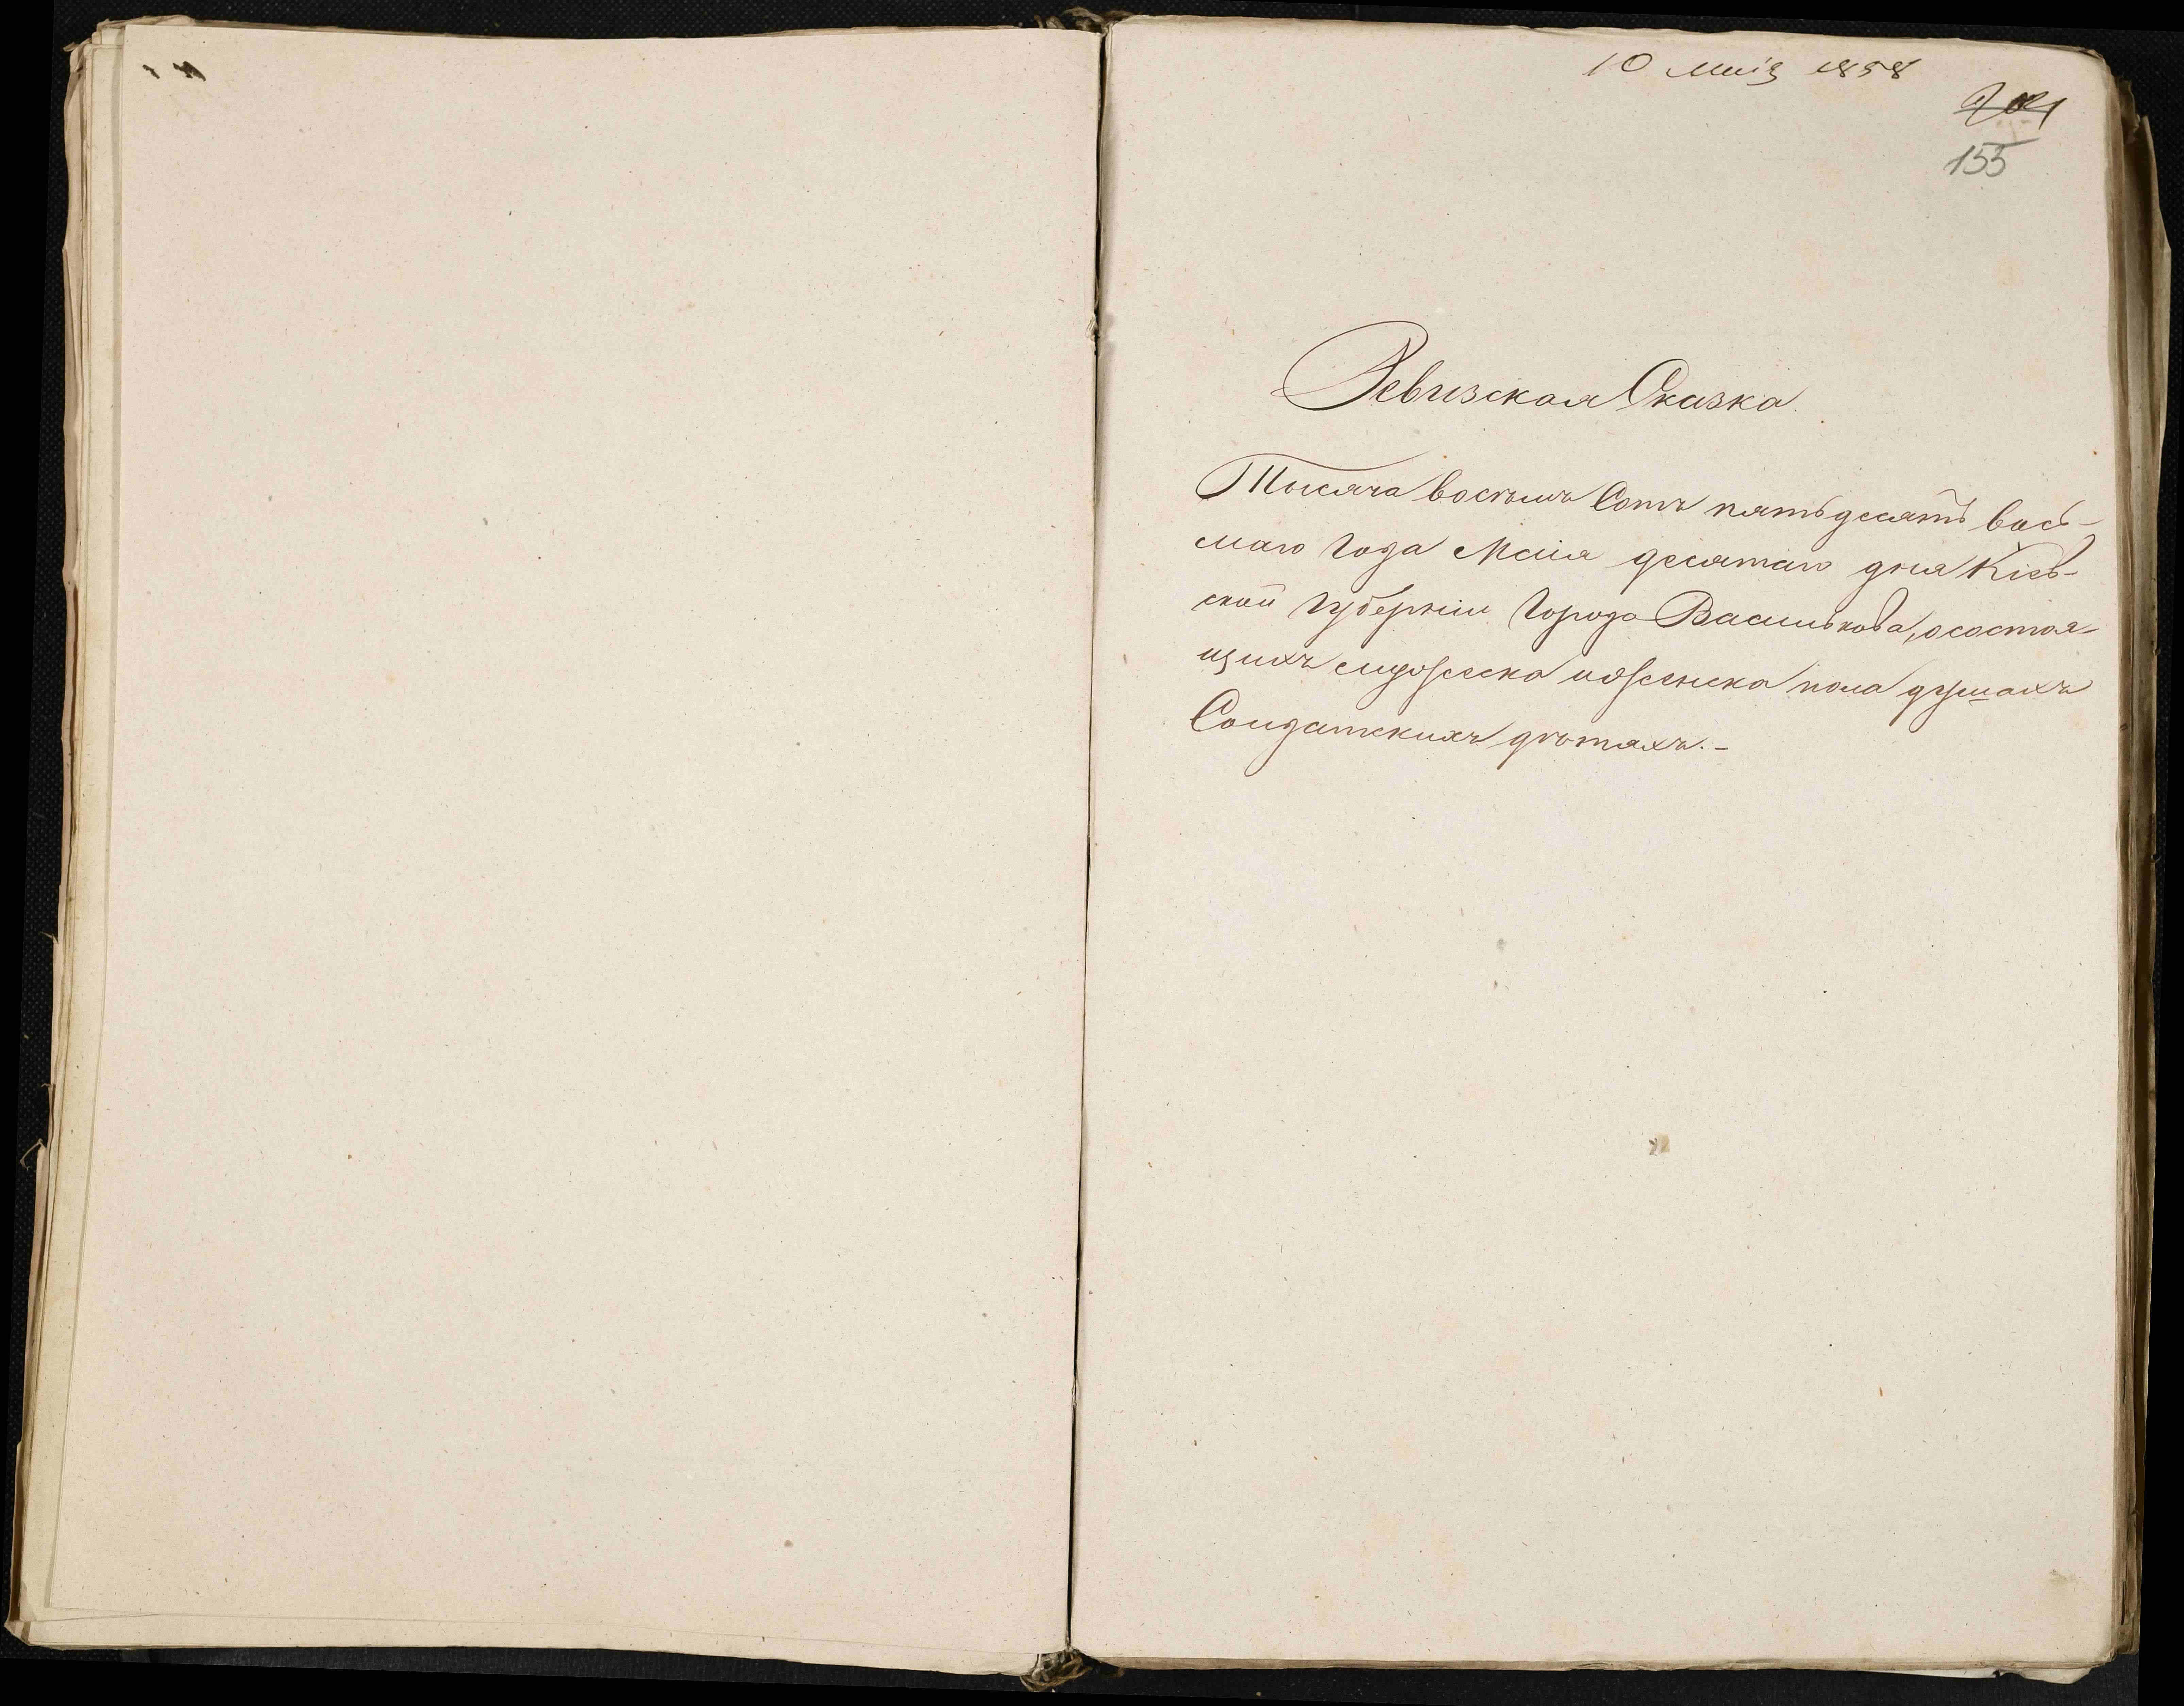 10 Маія 1858
155
Ревизская Сказка.
Тысяча восемь Сотъ пятьдесятъ вось-
маго Года Маія десятаго дня Кіев-
ской Губерніи Города Василькова, о состоя-
щихъ мужеска и женска пола душахъ
Солдатскихъ дѣтяхъ.-